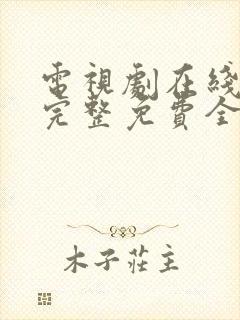 電視劇在綫
完整免費全
木子莊主